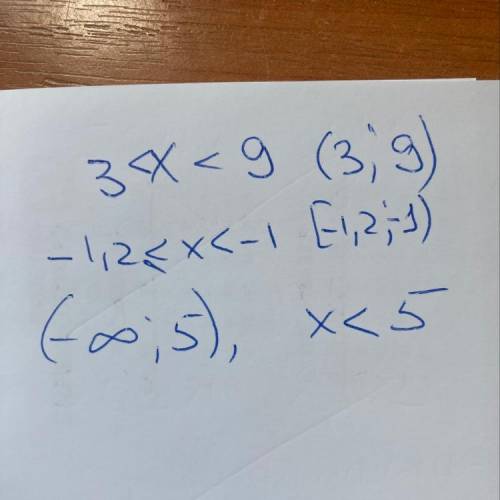 3 < x < 9 (3; 9)
-1,2 ⩽ x < -1 [-1,2; -1)
(-∞; 5), x < 5